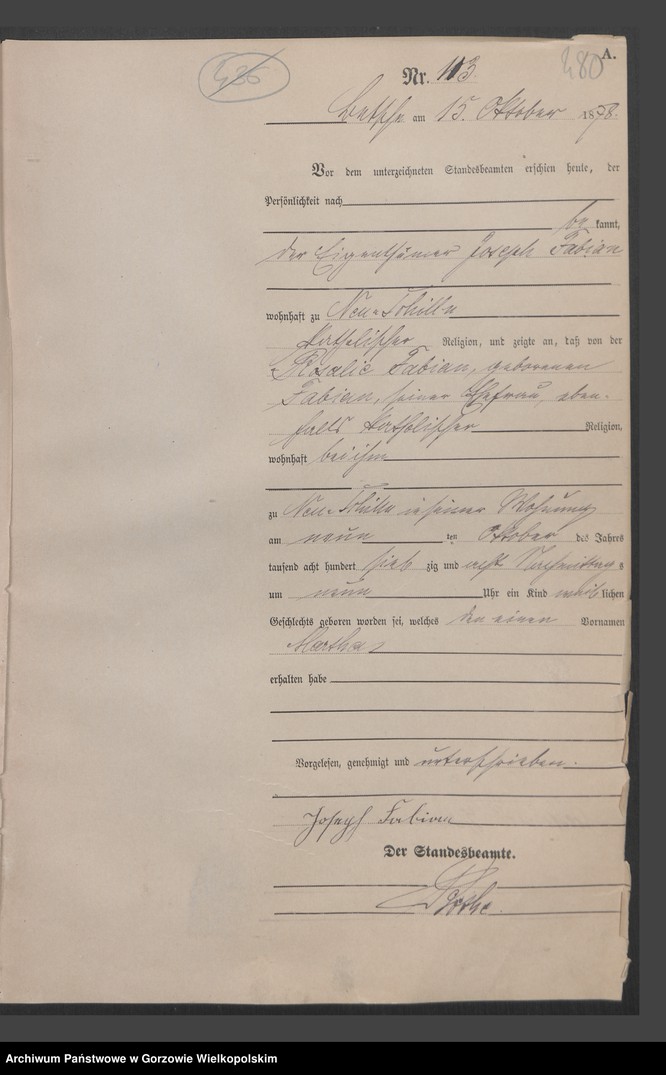 A.
480
436
Nr. 103.
Betsche am 15. Oktober 1878.
Vor dem unterzeichneten Standesbeamten erschien heute, der
Persönlichkeit nach
be kannt,
der Eigenthümer Joseph Fabian
wohnhaft zu Neu-Schilln
katholischer Religion, und zeigte an, daß von der
Rosalie Fabian, geborenen
Fabian, seiner Ehefrau, eben-
falls katholischer Religion,
wohnhaft bei ihm
zu Neu-Schilln in seiner Wohnung
am neun ten Oktober des Jahres
tausend acht hundert sieb zig und acht Nachmittag s
um neun Uhr ein Kind weib lichen
Geschlechts geboren worden sei, welches den einen Vornamen
Martha
erhalten habe
Vorgelesen, genehmigt und unterschrieben.
Joseph Fabian
Der Standesbeamte.
Archiwum Państwowe w Gorzowie Wielkopolskim